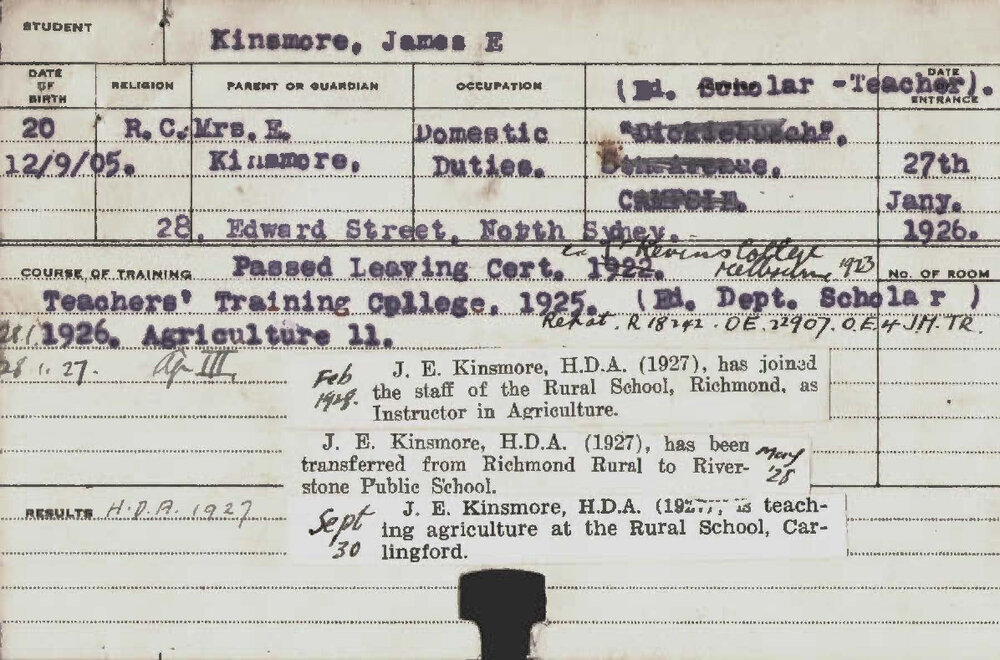 STUDENT
Kinsmore, James E
DATE OF BIRTH RELIGION PARENT OR GUARDIAN OCCUPATION (Ed. Scholar -Teacher). DATE ENTRANCE
20 R.C. Mrs. E. Domestic "Dickiebusch".
12/9/05. Kinsmore, Duties. 8th Avenue. 27th
CAMPSIE. Jany.
28, Edward Street, North Sydney. 1926.
COURSE OF TRAINING Passed Leaving Cert. 1922. Kevins College Melbourne 1923 No. OF ROOM
Teachers' Training College, 1925. (Ed. Dept. Scholar )
Repat. R 18242. OE. 22907. O.E. 4 JH. TR.
28/1/1926. Agriculture 11.
28 1. 27. Agr III.
Feb 1928. J. E. Kinsmore, H.D.A. (1927), has joined
the staff of the Rural School, Richmond, as
Instructor in Agriculture.
J. E. Kinsmore, H.D.A. (1927), has been
transferred from Richmond Rural to River-
stone Public School.
May '28
RESULTS H.D.A. 1927
Sept '30 J. E. Kinsmore, H.D.A. (1927), is teach-
ing agriculture at the Rural School, Car-
lingford.